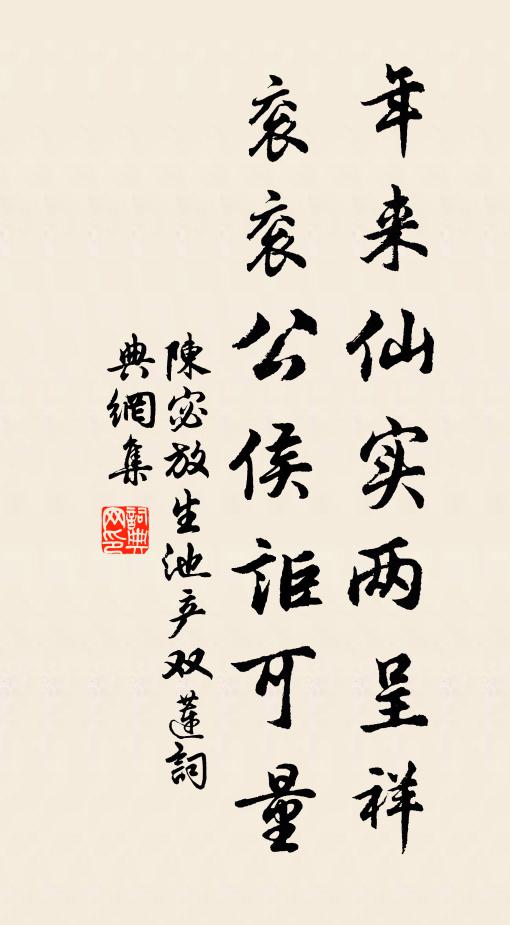 年来仙实两呈祥
衮衮公侯讵可量
陳宓放生池产双蓮詞
典網集
詞典网印